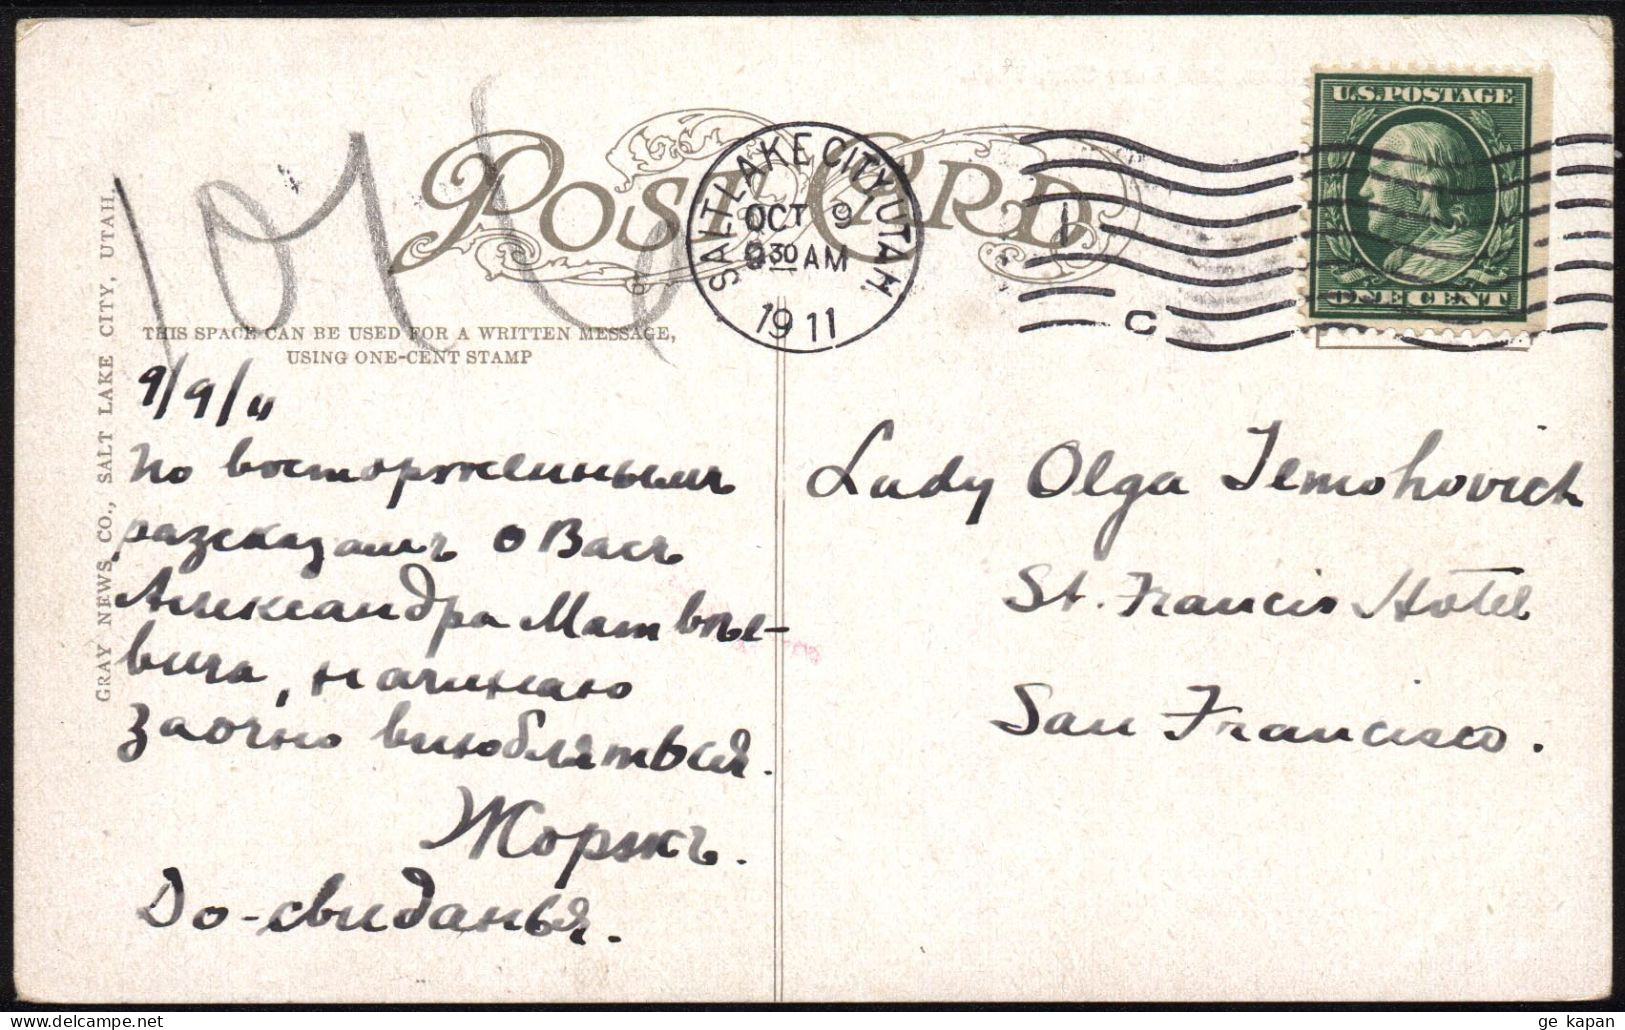 U.S.POSTAGE
ONE CENT
POST CARD
SALT LAKE CITY, UTAH
OCT 9
9 30 AM
1911
C
1046
THIS SPACE CAN BE USED FOR A WRITTEN MESSAGE,
USING ONE-CENT STAMP
GRAY NEWS CO., SALT LAKE CITY, UTAH.
9/9/11
По восторженнымъ
разсказамъ о Васъ
Александра Матвѣе-
вича, начинаю
заочно влюбляться.
Жоржъ.
До-свиданья.
Lady Olga
St. Francis Hotel
San Francisco.
ge_kapan
delcampe.net